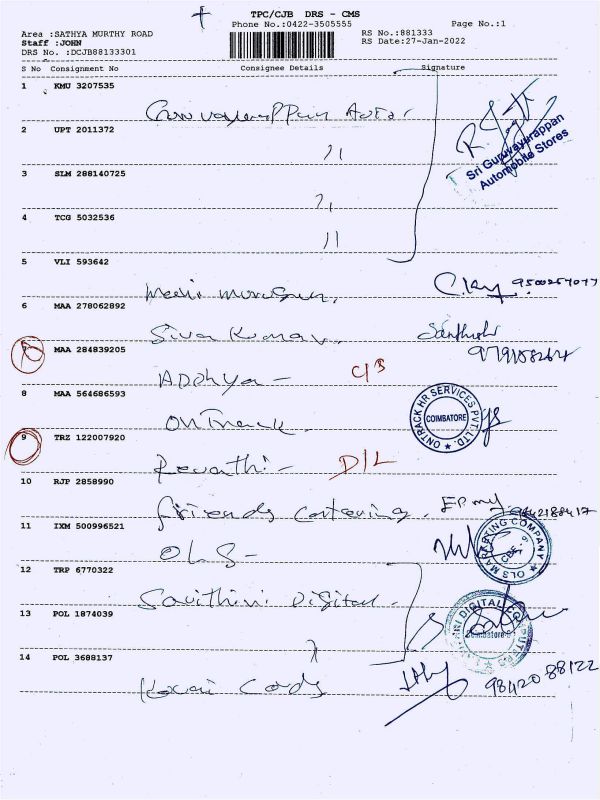 TPC/CJB DRS - CMS
Phone No.:0422-3505555
Page No.:1
Area :SATHYA MURTHY ROAD
RS No.:881333
Staff :JOHN
RS Date:27-Jan-2022
DRS No. :DCJB88133301
S No Consignment No Consignee Details Signature
1 KMU 3207535
Guruvayurappan Auto
2 UPT 2011372
Sri Guruvayurappan
Automobile Stores
3 SLM 288140725
4 TCG 5032536
5 VLI 593642
6 MAA 278062892
Siva Kumar
7 MAA 284839205
Addhya - C/B
8 MAA 564686593
OnTrack
ONTRACK HR SERVICES PVT. LTD.
COIMBATORE
9 TRZ 122007920
Revathi - D/L
10 RJP 2858990
Friends Catering
11 IXM 500996521
OLS -
OLS MARKETING COMPANY
12 TRP 6770322
Savithiri Digital
13 POL 1874039
14 POL 3688137
Kovai Cards 98420 88122